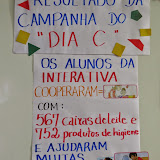 RESULTADO DA
CAMPANHA DO
"DIA C"
OS ALUNOS DA
INTERATIVA
COOPERARAM=
COM:
567 caixas de leite e
752 produtos de higiene
E AJUDARAM
MUITAS